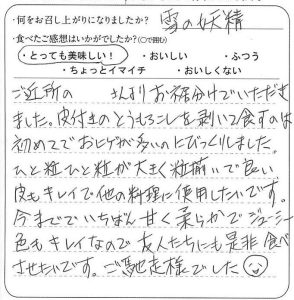 ・何をお召し上がりになりましたか？ 雪の妖精
・食べたご感想はいかがでしたか？(○で囲む)
・とっても美味しい！ ・おいしい ・ふつう
・ちょっとイマイチ ・おいしくない
ご近所の さんよりお裾分けでいただき
ました。皮付きのとうもろこしを剥いて食すのは
初めてでおヒゲが多いのにびっくりしました。
ひと粒ひと粒が大きく粒揃いで良い
皮もキレイで他の料理に使用したいです。
今まででいちばん甘く柔らかでジューシー
色もキレイなので友人たちにも是非食べ
させたいです。ご馳走様でした